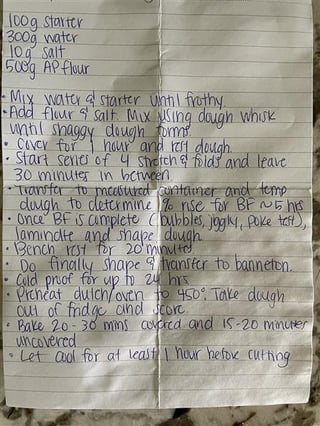 100g starter
300g water
10g salt
500g AP flour
• Mix water & starter until frothy.
• Add flour & salt. Mix using dough whisk
until shaggy dough forms.
• Cover for 1 hour and rest dough.
• Start series of 4 stretch & folds and leave
30 minutes in between.
• Transfer to measured container and temp
dough to determine % rise for BF ~5 hrs
• Once BF is complete (bubbles, jiggly, poke test),
laminate and shape dough.
• Bench rest for 20 minutes
• Do finally shape & transfer to banneton.
• Cold proof for up to 24 hrs
• Preheat dutch/oven to 450°. Take dough
out of fridge and score.
• Bake 20-30 mins covered and 15-20 minutes
uncovered
• Let cool for at least 1 hour before cutting